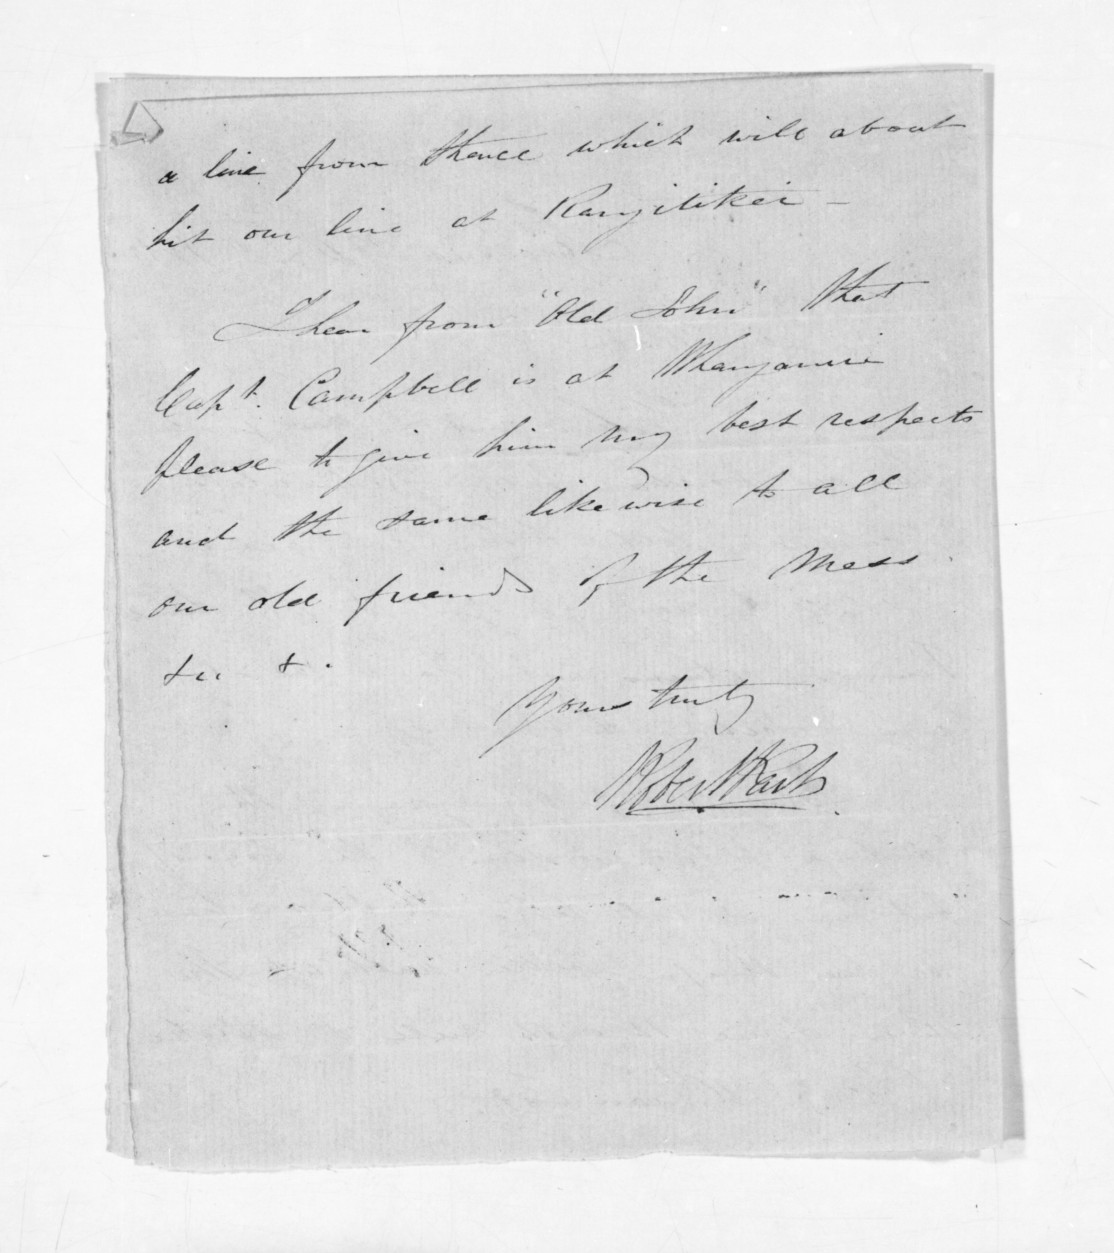 a line from thence which will about
hit our line at Rangitikei -
I hear from "Old John" that
Capt. Campbell is at Whanganui
please to give him my best respects
and the same likewise to all
our old friends of the Mess
&c &.
Yours truly
Robert Park